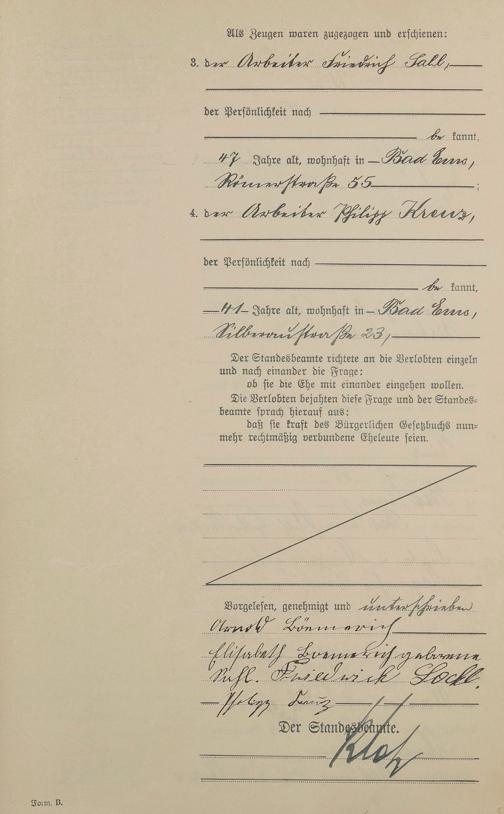 Als Zeugen waren zugezogen und erschienen:
3. der Arbeiter Friedrich
der Persönlichkeit nach
be kannt,
47 Jahre alt, wohnhaft in Bad Ems,
Römerstraße 55 ;
4. der Arbeiter Philipp Kreuz,
der Persönlichkeit nach
be kannt,
41 Jahre alt, wohnhaft in Bad Ems,
Silberaustraße 23,
Der Standesbeamte richtete an die Verlobten einzeln
und nach einander die Frage:
ob sie die Ehe mit einander eingehen wollen.
Die Verlobten bejahten diese Frage und der Standes-
beamte sprach hierauf aus:
daß sie kraft des Bürgerlichen Gesetzbuchs nun-
mehr rechtmäßig verbundene Eheleute seien.
Vorgelesen, genehmigt und unterschrieben
Arnold
Elisabeth geborene
Friedrich
Der Standesbeamte.
Form. B.